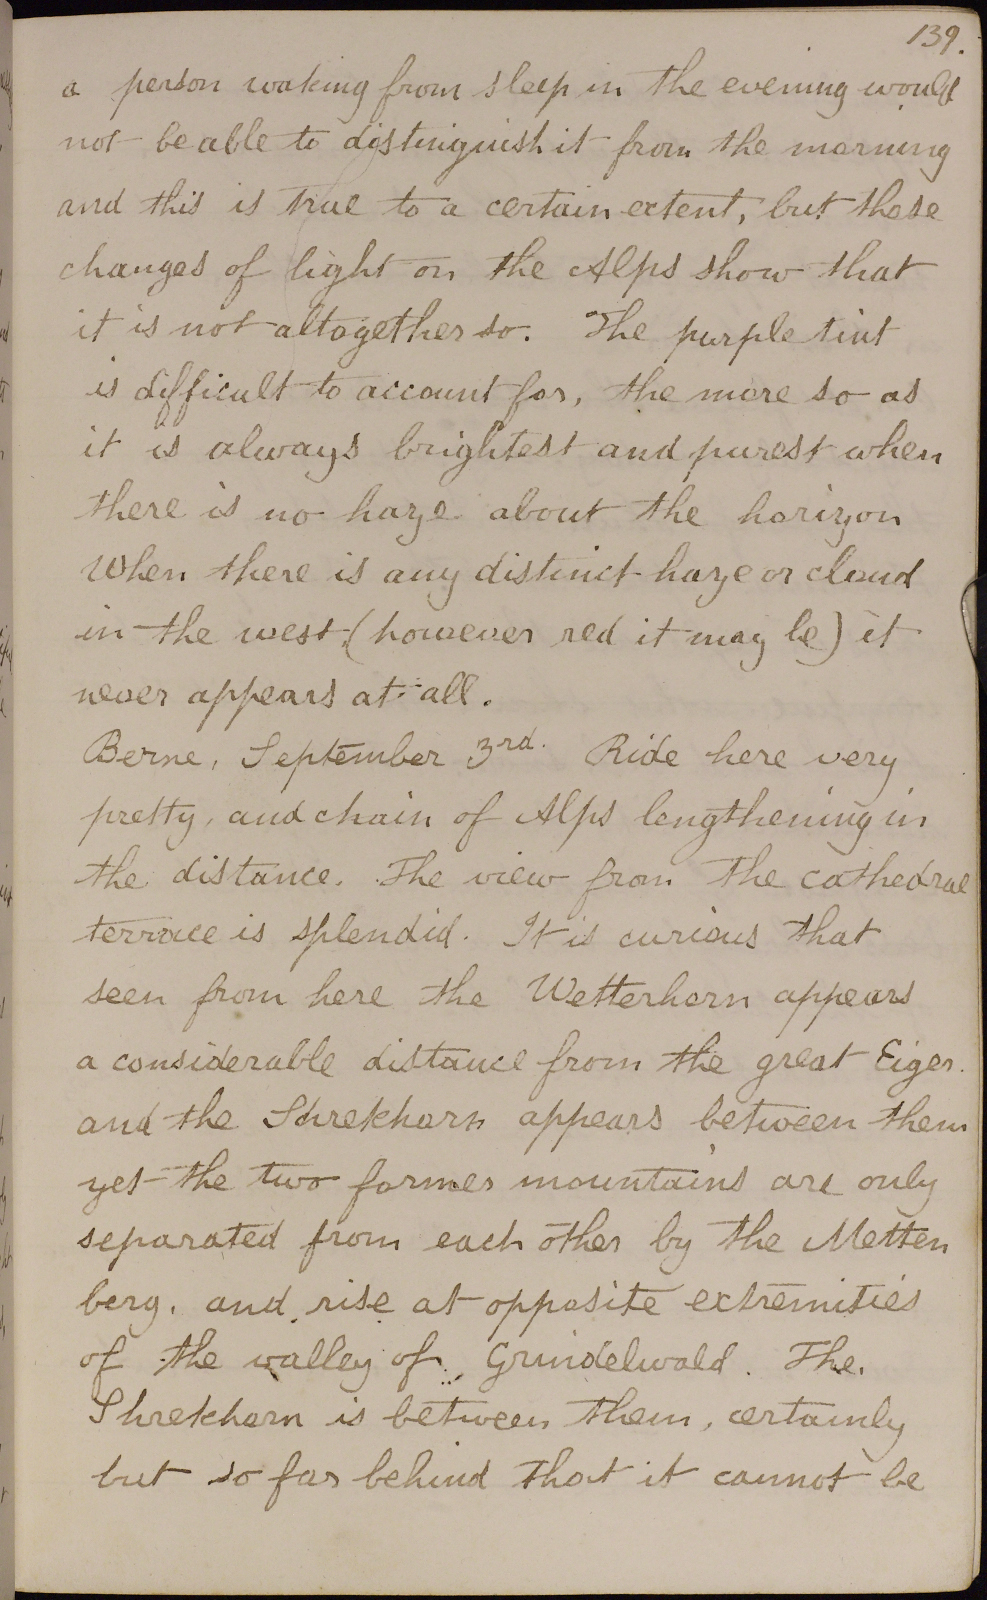 139.
a person waking from sleep in the evening would
not be able to distinguish it from the morning
and this is true to a certain extent, but these
changes of light on the Alps show that
it is not altogether so. The purple tint
is difficult to account for, the more so as
it is always brightest and purest when
there is no haze about the horizon
When there is any distinct haze or cloud
in the west (however red it may be) it
never appears at all.
Berne, September 3rd. Ride here very
pretty, and chain of Alps lengthening in
the distance. The view from the cathedral
terrace is splendid. It is curious that
seen from here the Wetterhorn appears
a considerable distance from the great Eiger.
and the Shrekhorn appears between them
yet the two former mountains are only
separated from each other by the Metten
berg. and rise at opposite extremities
of the valley of Grindelwald. The
Shrekhorn is between them, certainly
but so far behind that it cannot be